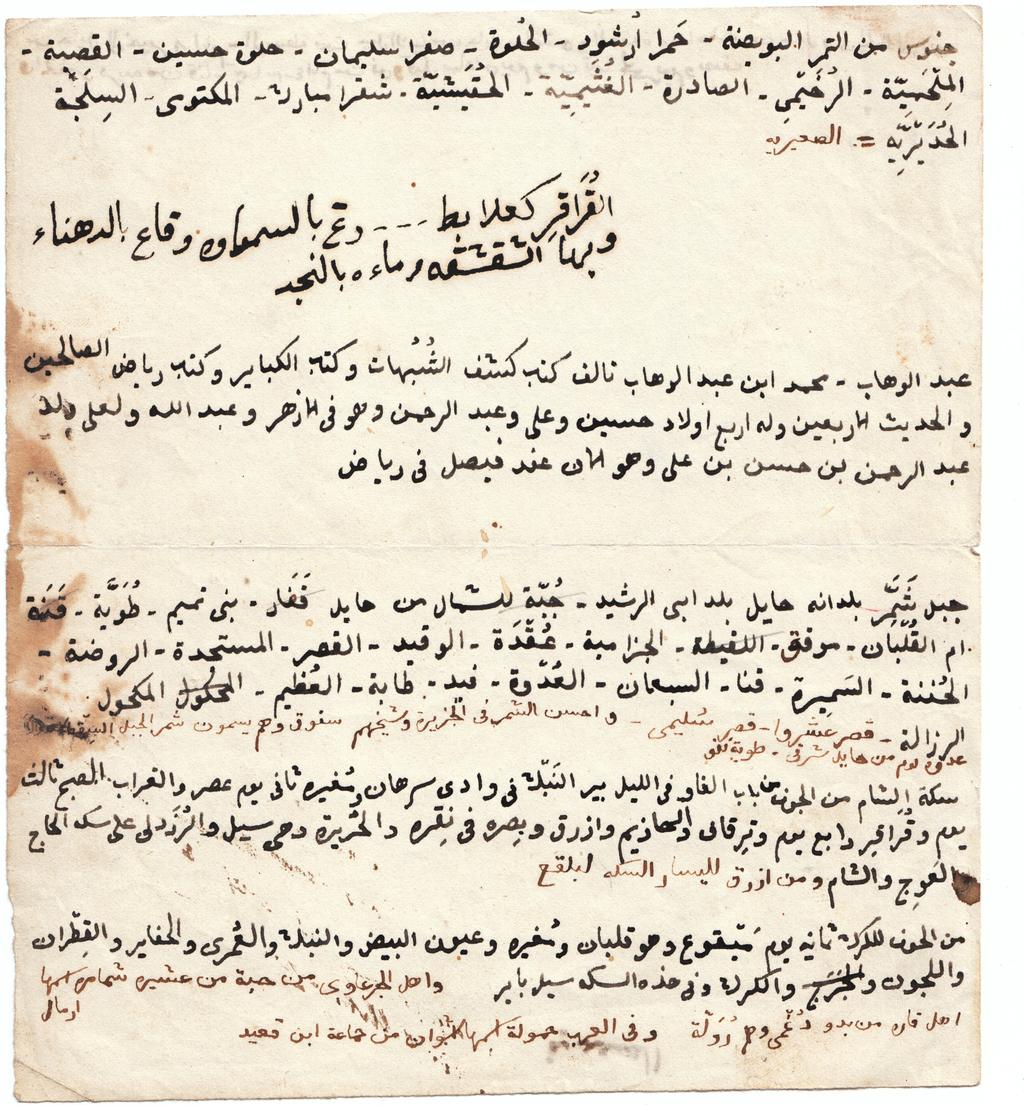 جنوس من التمر البويضة - حَمرا أرشود - الحُلوة - صفرا سليمان - حلوة حسين - القصبة -
المِلْحَمِيّة - الرُخَيْمي - الصادرة - الغُثَيمِيّة - الحُقَيشيّة - شقرا مبارك - المكتومى - السِلَجّة
الحُدَيْرِيّه = الصعيريه
القُرَاقِر كعلابط --- دع بالسماوه وقاع بالدهناء
وبها الشقشقه وماءه بالنجد
عبد الوهاب - محمد ابن عبد الوهاب تالف كتب كشف الشُبُهات وكتب الكباير وكتب رياض الصالحين
والحديث الاربعين وله اربع اولاد حسين وعلى وعبد الرحمن وهو فى الازهر وعبد الله ولعلى ولد
عبد الرحمن بن حسن بن على وهو الان عند فيصل فى رياض
جبل شَمَّر بلدانه حايل بلد ابى الرشيد - جُبّة للشمال من حايل قَفَار - بنى تميم - طُوَيَّة - قَنَة
ام القُلْبان - موقق - اللقيطة - الجزامية - عُقْدَة - الوقيد - القصر - المستجدة - الروضة -
الحُننة - السَميرة - قنا - السبعان - الغُدْوة - فيد - طابة - العُظيم - المحكول المكحول
الرزالة - قصر عشروا - قصر سُليمى - واحسن الشمر فى الجزيرة وشيخهم سفوق وهم يسمون شمر الجبل
عدوه يوم من هايل شرقى - طوية
سكة الشام من الجوف من باب الغاو فى الليل بير النَبك فى وادى سرهان وصُغيره ثانى يوم عصر والغراب الصبح ثالث
يوم وقُراقير رابع يوم وتِرقان والهازيم وازرق وبصره فى نقره والحُريرة وحمى سيل والزُردلى على سكة الحاج
العَوج والشام ومن ازرق لليسار السكه لبلقع
من الجوف للكرك ثمانه يوم مَيقوع وهو قلبان وصُغيره وعيون البيض والنبك والعُمرى والحفاير والقِطْران
واللجون والكرك وفى هذه السكه سيل باير واهل الجرعاوى من حبة من عشيره شمامره اسمها
ارمال
اهل قاره من بدو دُغمى وهم رُوَلّة وفى العرب حمولة اسمها من جماعة ابن قعيد